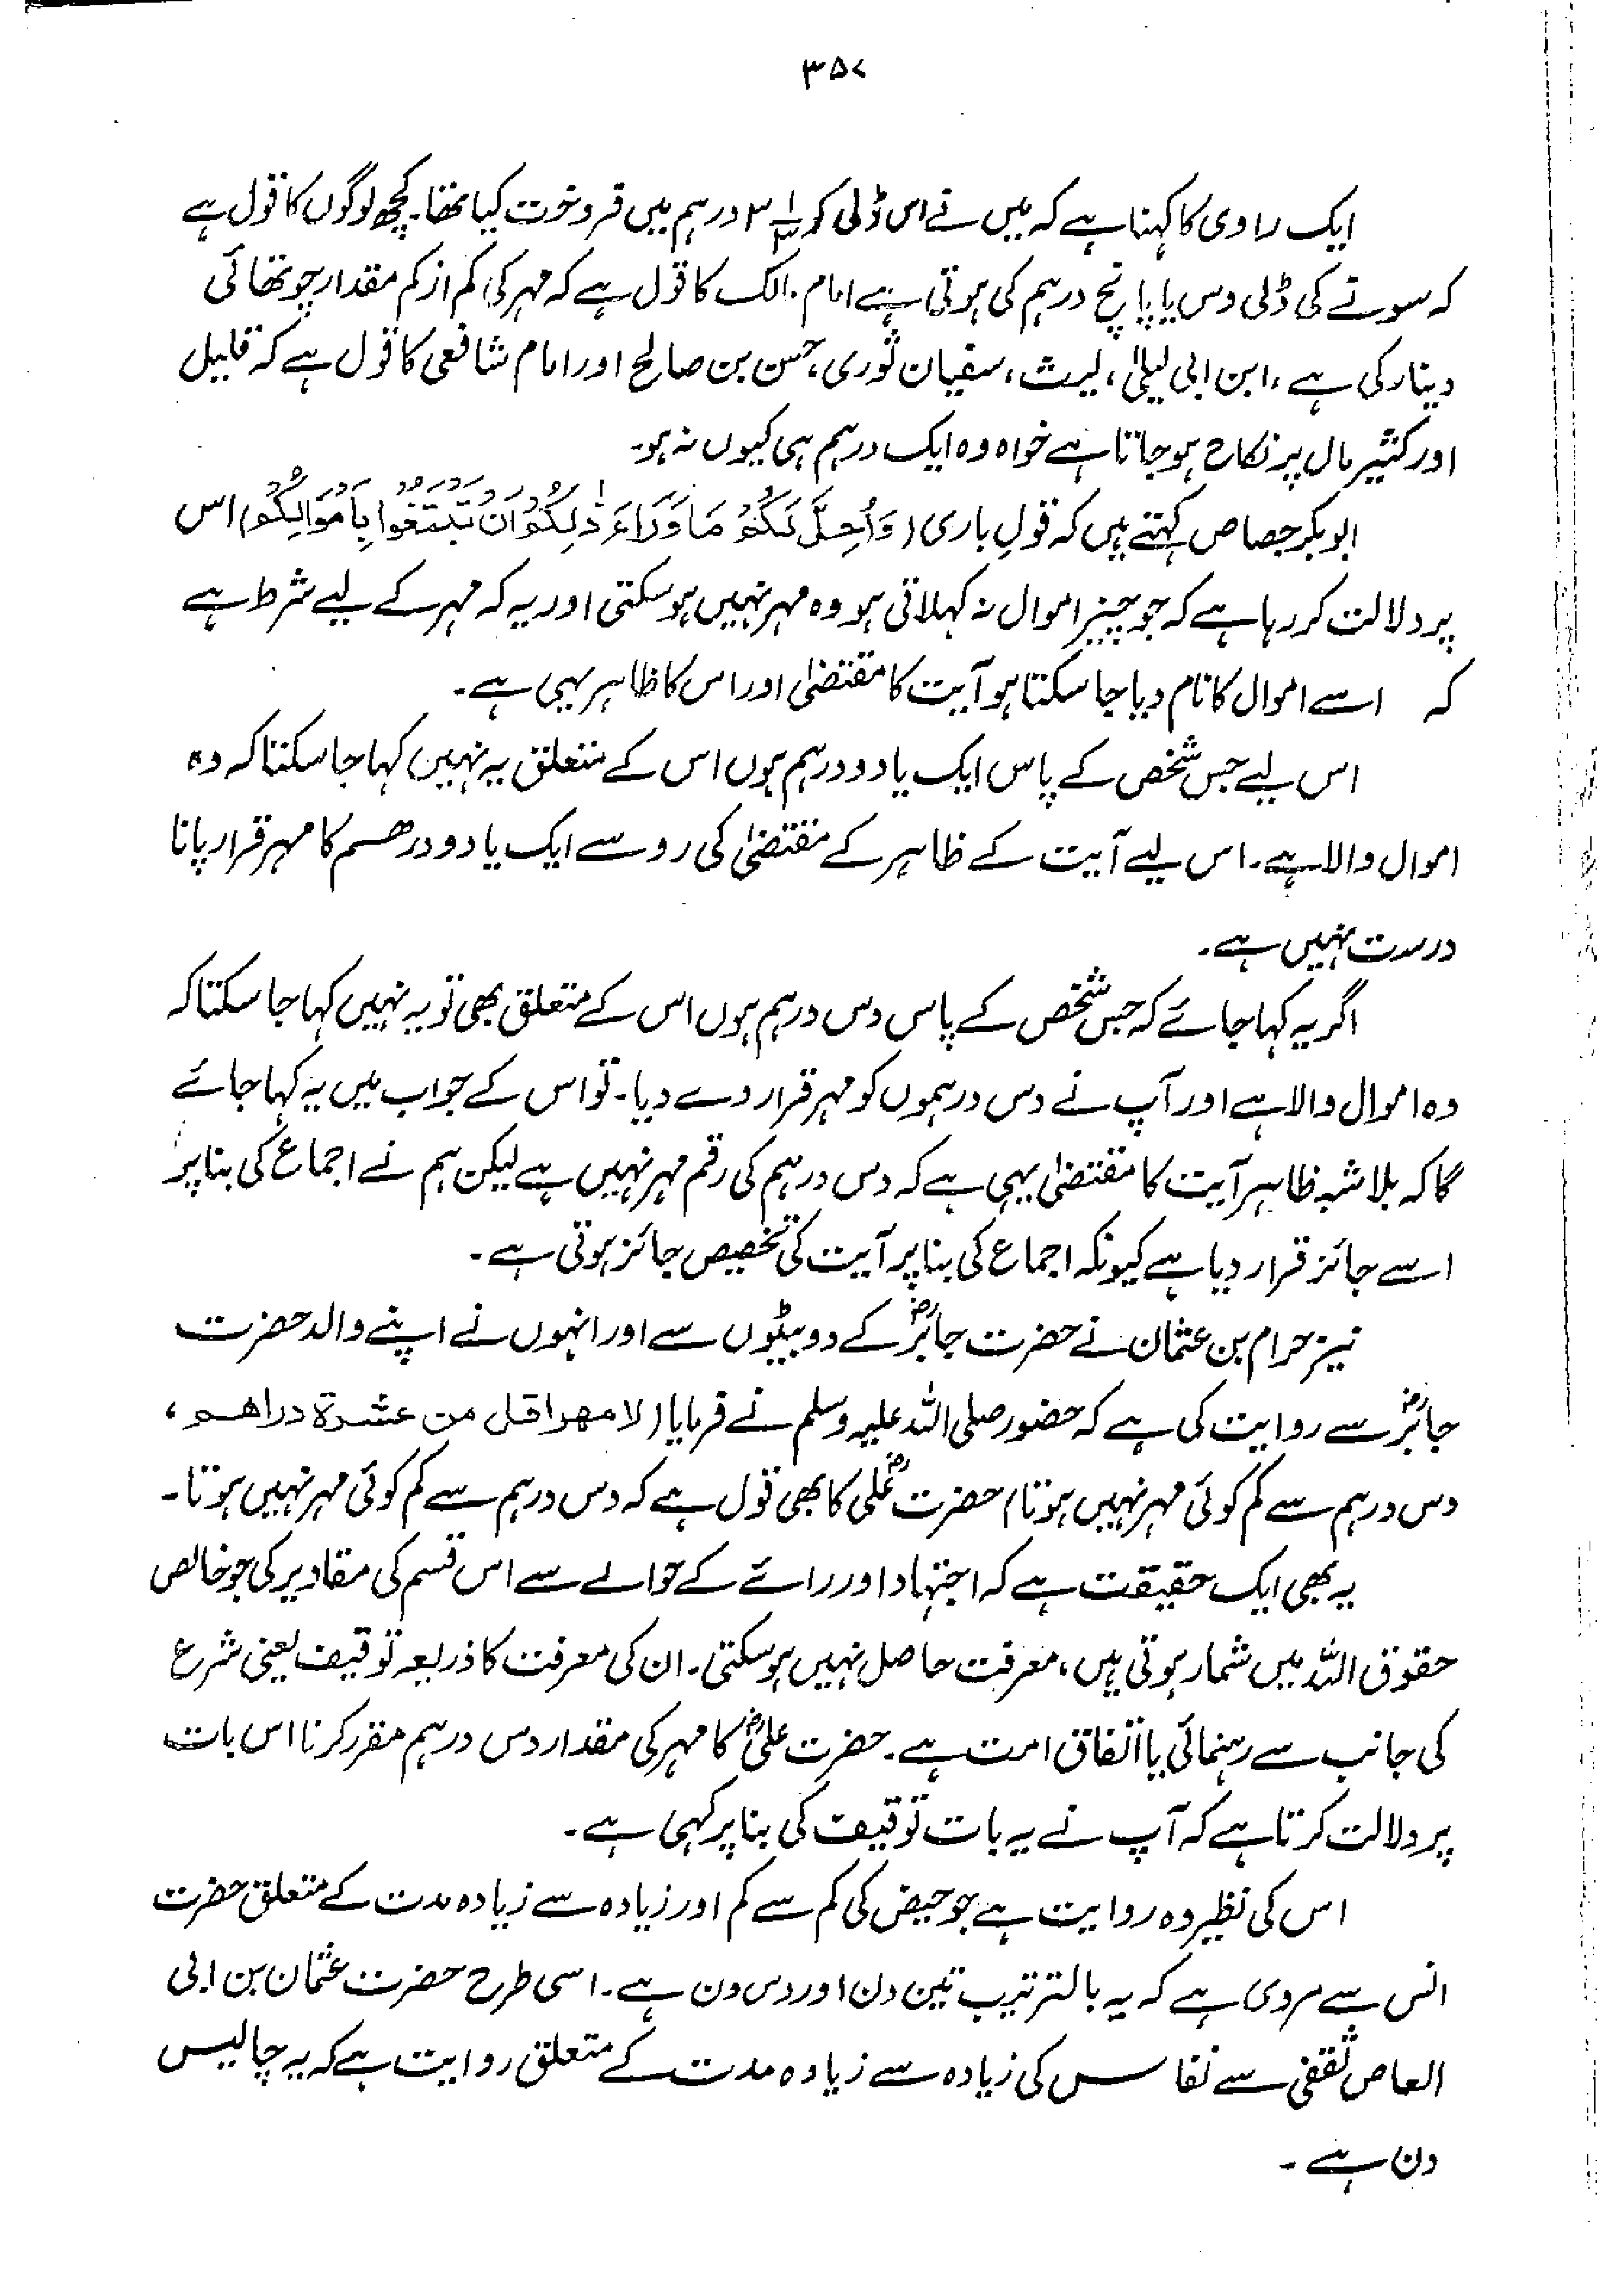 ۳۵۷
ایک راوی کا کہنا ہے کہ میں نے اس ڈلی کو ۳ ۱/۳ درہم میں فروخت کیا تھا۔ کچھ لوگوں کا قول ہے
کہ سونے کی ڈلی دس یا پانچ درہم کی ہوتی ہے امام مالک کا قول ہے کہ مہر کی کم از کم مقدار چوتھائی
دینار کی ہے، ابن ابی لیلیٰ، لیث، سفیان ثوری، حسن بن صالح اور امام شافعی کا قول ہے کہ قلیل
اور کثیر مال پر نکاح ہو جاتا ہے خواہ وہ ایک درہم ہی کیوں نہ ہو۔
ابوبکر جصاص کہتے ہیں کہ قولِ باری (وَاُحِلَّ لَكُمْ مَا وَرَاءَ ذٰلِكُمْ اَنْ تَبْتَغُوْا بِاَمْوَالِكُمْ) اس
پر دلالت کر رہا ہے کہ جو چیز اموال نہ کہلاتی ہو وہ مہر نہیں ہو سکتی اور یہ کہ مہر کے لیے شرط ہے
کہ اسے اموال کا نام دیا جا سکتا ہو آیت کا مقتضیٰ اور اس کا ظاہر یہی ہے۔
اس لیے جس شخص کے پاس ایک یا دو درہم ہوں اس کے متعلق یہ نہیں کہا جا سکتا کہ وہ
اموال والا ہے۔ اس لیے آیت کے ظاہر کے مقتضیٰ کی رو سے ایک یا دو درھم کا مہر قرار پانا
درست نہیں ہے۔
اگر یہ کہا جائے کہ جس شخص کے پاس دس درہم ہوں اس کے متعلق بھی تو یہ نہیں کہا جا سکتا کہ
وہ اموال والا ہے اور آپ نے دس درہموں کو مہر قرار دے دیا۔ تو اس کے جواب میں یہ کہا جائے
گا کہ بلا شبہ ظاہر آیت کا مقتضیٰ یہی ہے کہ دس درہم کی رقم مہر نہیں ہے لیکن ہم نے اجماع کی بنا پر
اسے جائز قرار دیا ہے کیونکہ اجماع کی بنا پر آیت کی تخصیص جائز ہوتی ہے۔
نیز حرام بن عثمان نے حضرت جابرؓ کے دو بیٹوں سے اور انہوں نے اپنے والد حضرت
جابرؓ سے روایت کی ہے کہ حضور صلی اللہ علیہ وسلم نے فرمایا (لا مهر اقل من عشرة دراهم،
دس درہم سے کم کوئی مہر نہیں ہوتا) حضرت علیؓ کا بھی قول ہے کہ دس درہم سے کم کوئی مہر نہیں ہوتا۔
یہ بھی ایک حقیقت ہے کہ اجتہاد اور رائے کے حوالے سے اس قسم کی مقادیر کی جو خالص
حقوق اللہ میں شمار ہوتی ہیں، معرفت حاصل نہیں ہو سکتی۔ ان کی معرفت کا ذریعہ توقیف یعنی شرع
کی جانب سے رہنمائی یا اتفاق امت ہے۔ حضرت علیؓ کا مہر کی مقدار دس درہم مقرر کرنا اس بات
پر دلالت کرتا ہے کہ آپ نے یہ بات توقیف کی بنا پر کہی ہے۔
اس کی نظیر وہ روایت ہے جو حیض کی کم سے کم اور زیادہ سے زیادہ مدت کے متعلق حضرت
انس سے مروی ہے کہ یہ بالترتیب تین دن اور دس دن ہے۔ اسی طرح حضرت عثمان بن ابی
العاص ثقفی سے نفاس کی زیادہ سے زیادہ مدت کے متعلق روایت ہے کہ یہ چالیس
دن ہے۔